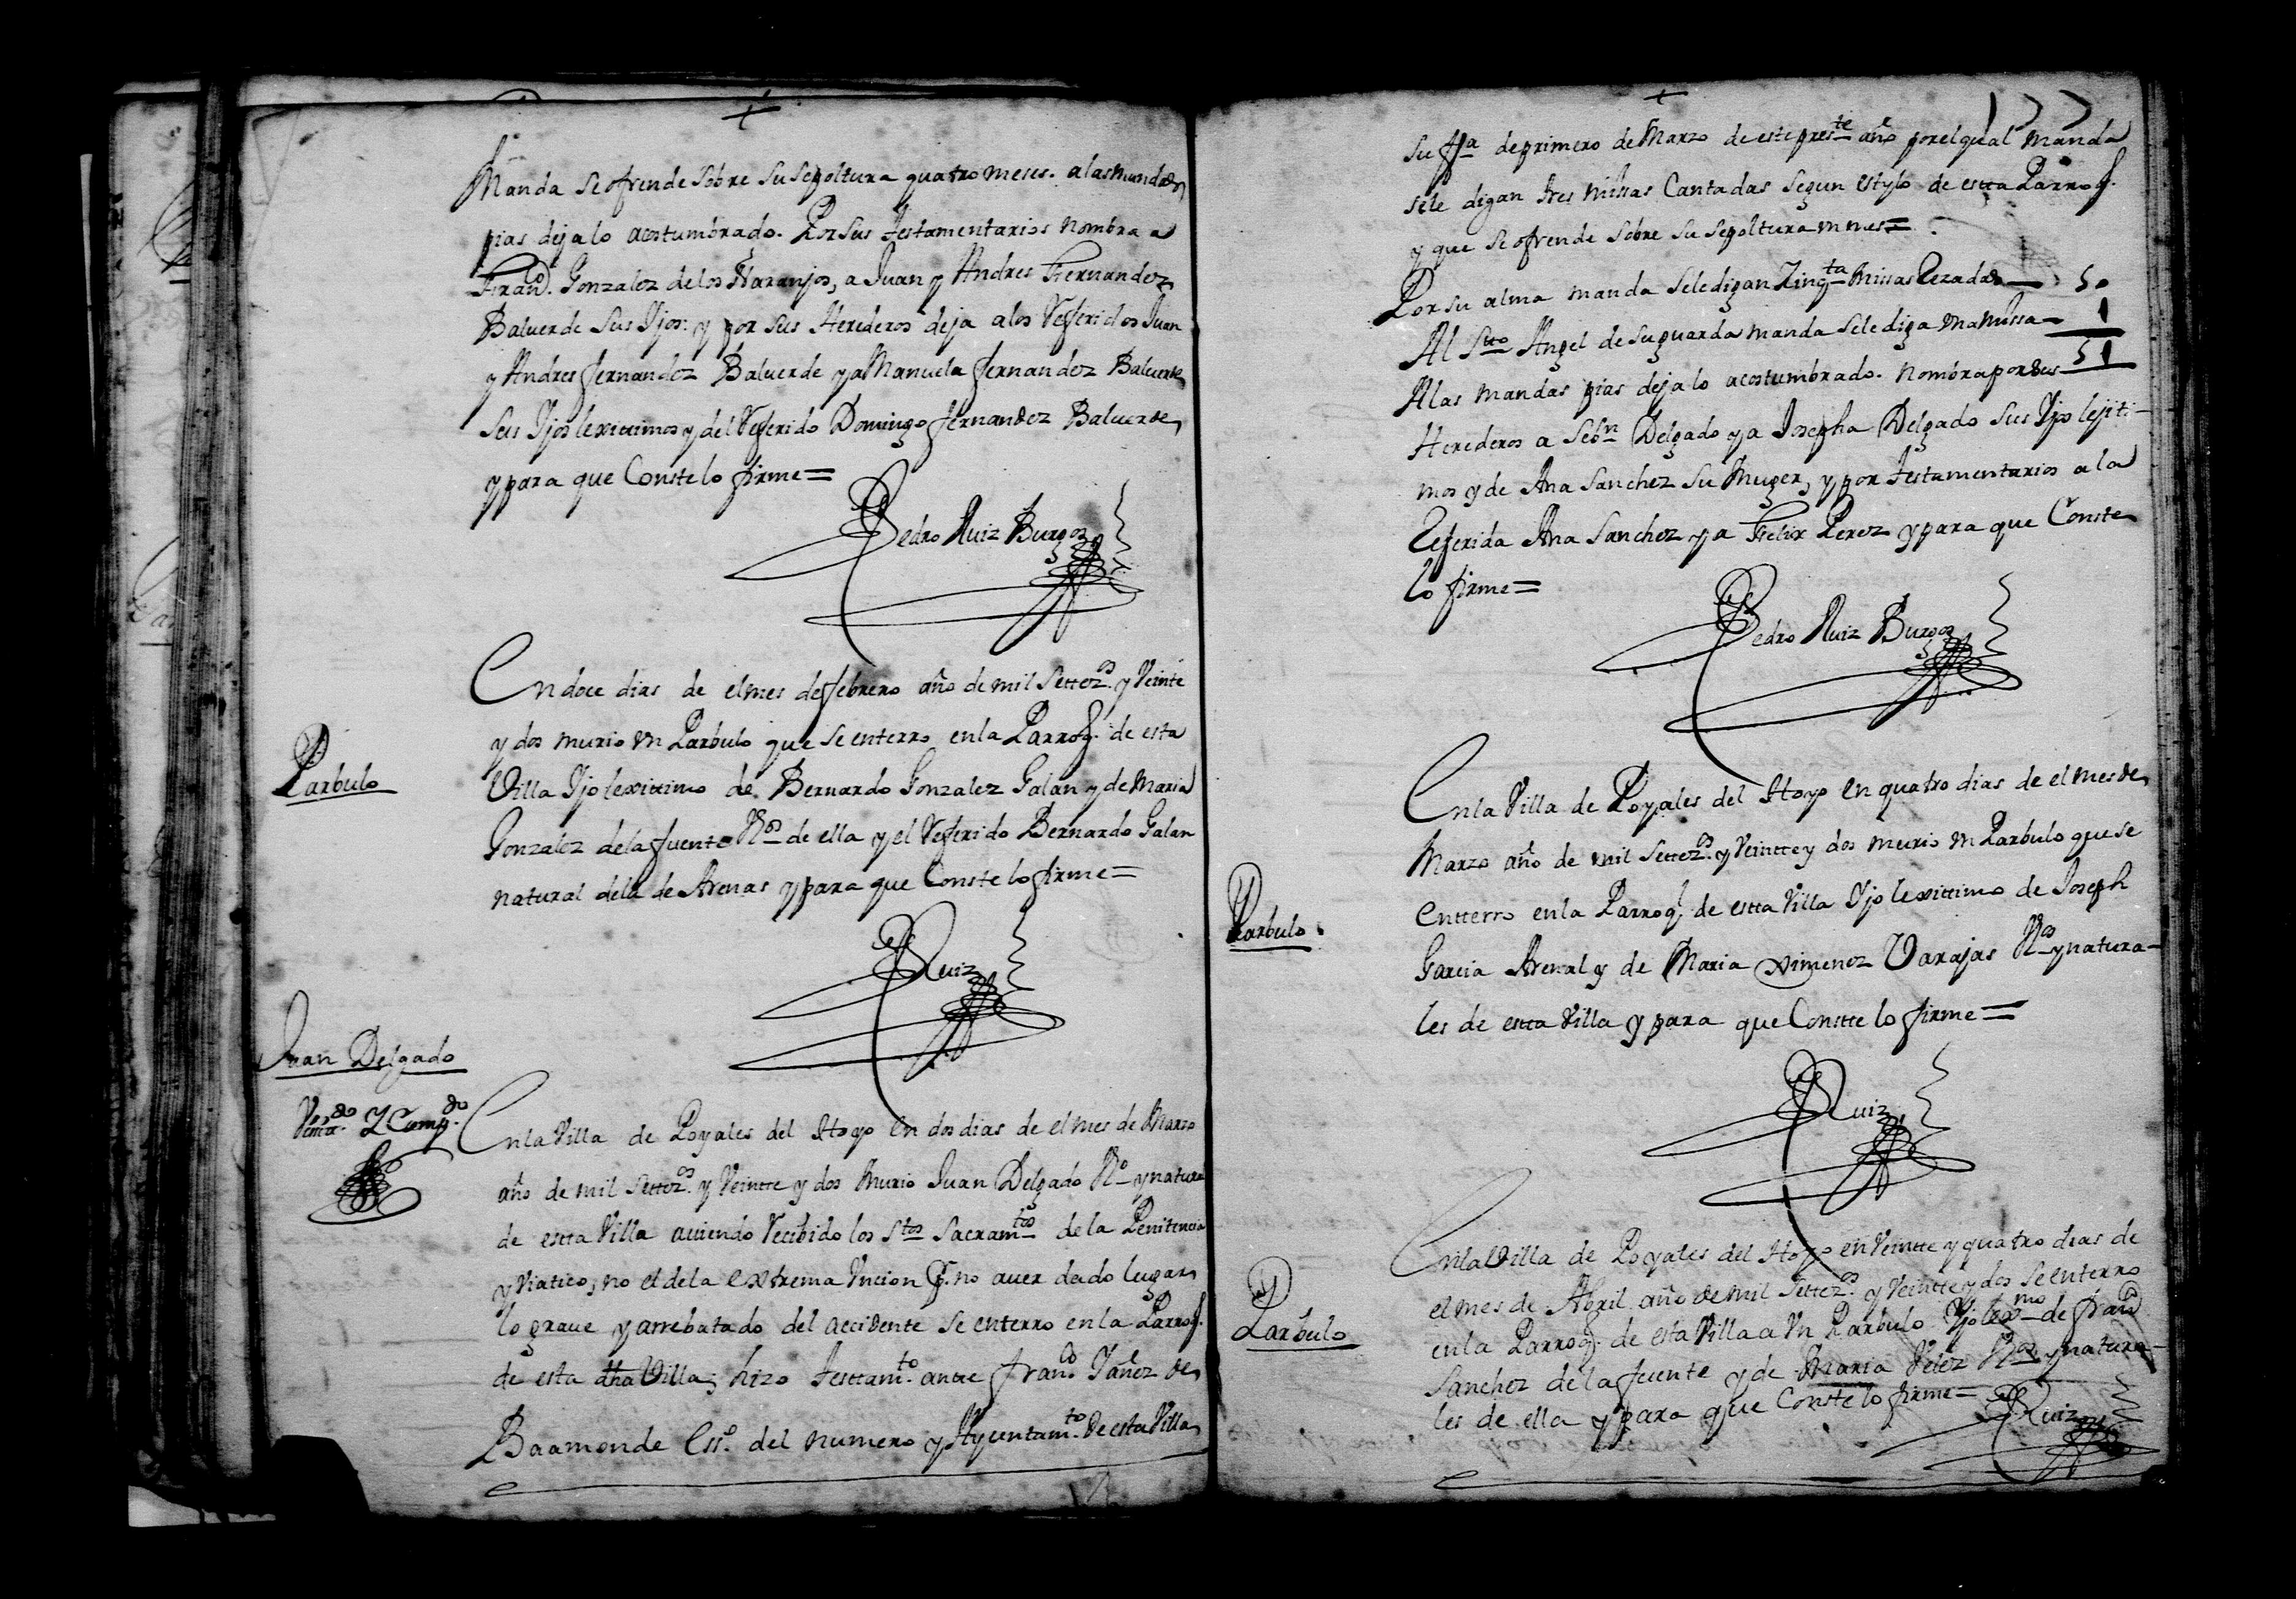 Manda se ofrende sobre su sepoltura quatro meses. a las mandas
pias deja lo acostumbrado. Por sus testamentarios nombra a
Franco. Gonzalez de los Naranjos, a Juan y Andres Fernandez
Baluerde sus Yjos: y por sus Herederos deja a los Referidos Juan
y Andres fernandez Baluerde y a Manuela fernandez Baluerde
sus Yjos lexitimos y del Referido Domingo fernandez Baluerde,
y para que Conste lo firme=
Pedro Ruiz Burgos
En doce dias de el mes de febrero año de mil settezos. y Veinte
y dos murio Vn Parbulo que se enterro en la Parroq. de esta
Parbulo
Villa Yjo lexittimo de Bernardo Gonzalez Galan y de Maria
Gonzalez de la fuente Vos de ella y el Referido Bernardo Galan
natural de la de Arenas y para que Conste lo firme=
Ruiz
Juan Delgado
En la Villa de Poyales del Hoyo en dos dias de el mes de Marzo
año de mil settezos. y Veintte y dos Murio Juan Delgado Vo y natural
de estta Villa auiendo Recibido los Stos Sacramtos de la Penitencia
y Viatico, no el de la extrema Vncion p. no auer dado lugar
lo graue y arrebatado del accidente se enterro en la Parroq.
de esta dha Villa, hizo testtamto. antte franco Yañez de
Baamonde Esso. del numero y Ayuntamto. de esta Villa
177
su fha de primero de Marzo de este preste año por el qual manda
se le digan tres missas Cantadas segun estylo de estta Parroq.
y que se ofrende sobre su sepoltura vn mes=
Por su alma manda se le digan Zinqta missas Rezadas — 50
Al Sto Angel de su guarda manda se le diga vna missa — 1
51
A las mandas pias deja lo acostumbrado. nombra por sus
Herederos a Sebn Delgado y a Josepha Delgado sus Yjos lejiti-
mos y de Ana Sanchez su Muger, y por testamentarios a la
Referida Ana Sanchez y a Felix Perez y para que Conste
lo firme=
Pedro Ruiz Burgos
En la Villa de Poyales del Hoyo en quatro dias de el mes de
Marzo año de mil settezos. y Veintte y dos murio vn Parbulo que se
Parbulo
entterro en la Parroq. de estta Villa Yjo lexittimo de Joseph
Garcia Arenal y de Maria Ximenez Varajas Vos y natura-
les de estta Villa y para que Constte lo firme=
Ruiz
En la Villa de Poyales del Hoyo en Veintte y quatro dias de
el mes de Abril año de mil settezos. y Veintte y dos se enterro
Parbulo
en la Parroq. de esta Villa a Vn Parbulo Yjo lexmo de franco
Sanchez de la fuente y de Maria Velez Vos y natura-
les de ella y para que Conste lo firme=
Ruiz